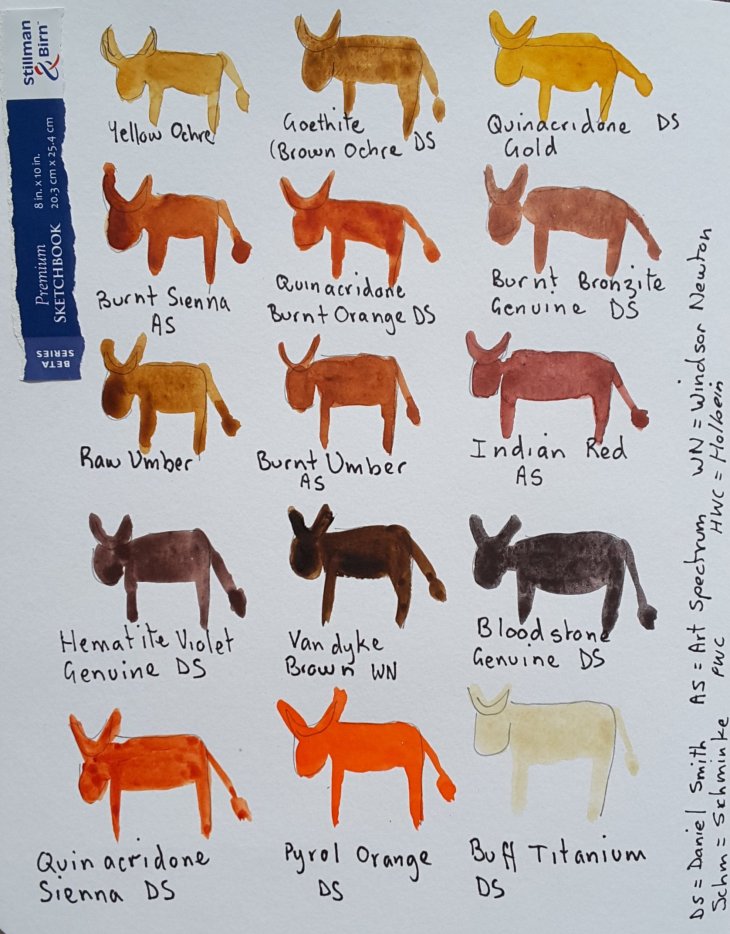 Stillman
& Birn
Premium
SKETCHBOOK
8 in. x 10 in.
20.3 cm x 25.4 cm
BETA
SERIES
Yellow Ochre
Goethite
(Brown Ochre DS
Quinacridone DS
Gold
Burnt Sienna
AS
Quinacridone
Burnt Orange DS
Burnt Bronzite
Genuine DS
Raw Umber
Burnt Umber
AS
Indian Red
AS
Hematite Violet
Genuine DS
Van dyke
Brown WN
Bloodstone
Genuine DS
Quinacridone
Sienna DS
Pyrol Orange
DS
Buff Titanium
DS
DS = Daniel Smith AS = Art Spectrum WN = Windsor Newton
Schm = Schminke PWC HWC = Holbein